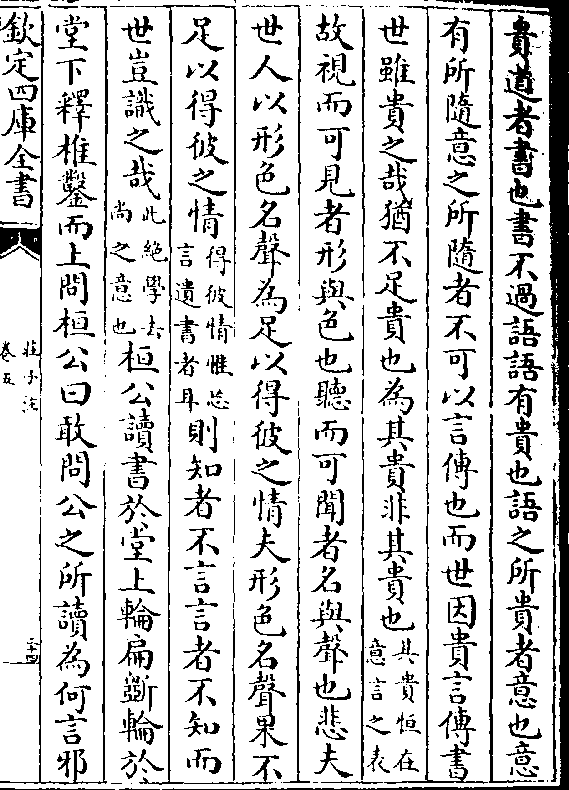 貴道者書也書不過語語有貴也語之所貴者意也意
有所隨意之所隨者不可以言傳也而世因貴言傳書
世雖貴之哉猶不足貴也為其貴非其貴也其貴恒在意言之表
故視而可見者形與色也聽而可聞者名與聲也悲夫
世人以形色名聲為足以得彼之情夫形色名聲果不
足以得彼之情得彼情惟忘言遺書者耳則知者不言言者不知而
世豈識之哉此絶學去尚之意也桓公讀書於堂上輪扁斵輪於
堂下釋椎鑿而上問桓公曰敢問公之所讀為何言邪
欽定四庫全書
莊子注
卷五